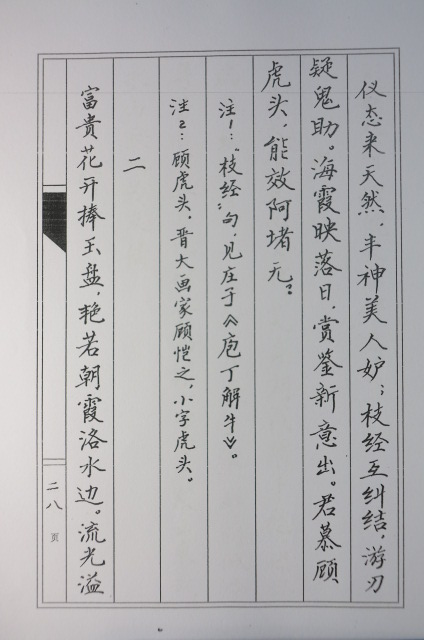 仪态来天然，丰神美人妒；枝经互纠结，游刃
疑鬼助。海霞映落日，赏鉴新意出。君慕顾
虎头，能效阿堵无？
注1：“枝经”句，见庄子《庖丁解牛》。
注2：顾虎头，晋大画家顾恺之，小字虎头。
二
富贵花开捧玉盘，艳若朝霞洛水边。流光溢
二八页